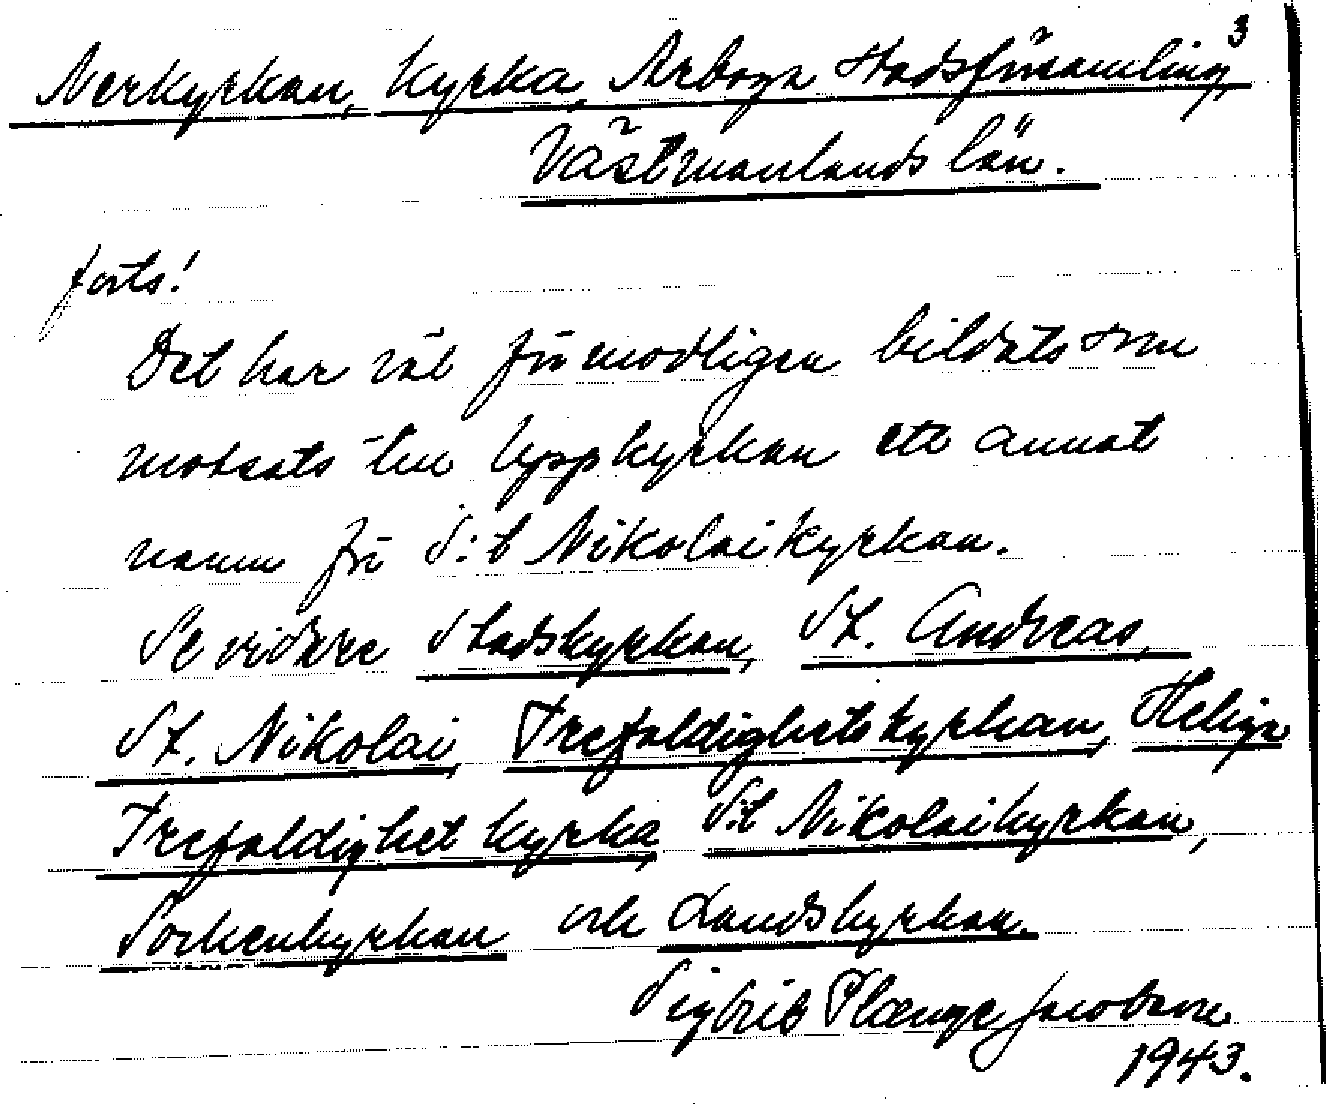 3
Nerkyrkan, kyrka, Arboga stadsförsamling,
Västmanlands län.
forts!
Det har väl förmodligen bildats som
motsats till Uppkyrkan ett annat
namn för S:t Nikolaikyrkan.
Se vidare Stadskyrkan, St. Andreas,
St. Nikolai, Trefaldighetskyrkan, Helige
Trefaldighet kyrka, S:t Nikolaikyrkan,
Sockenkyrkan och Landskyrkan.
Sigbrit Plænge Jacobson
1943.